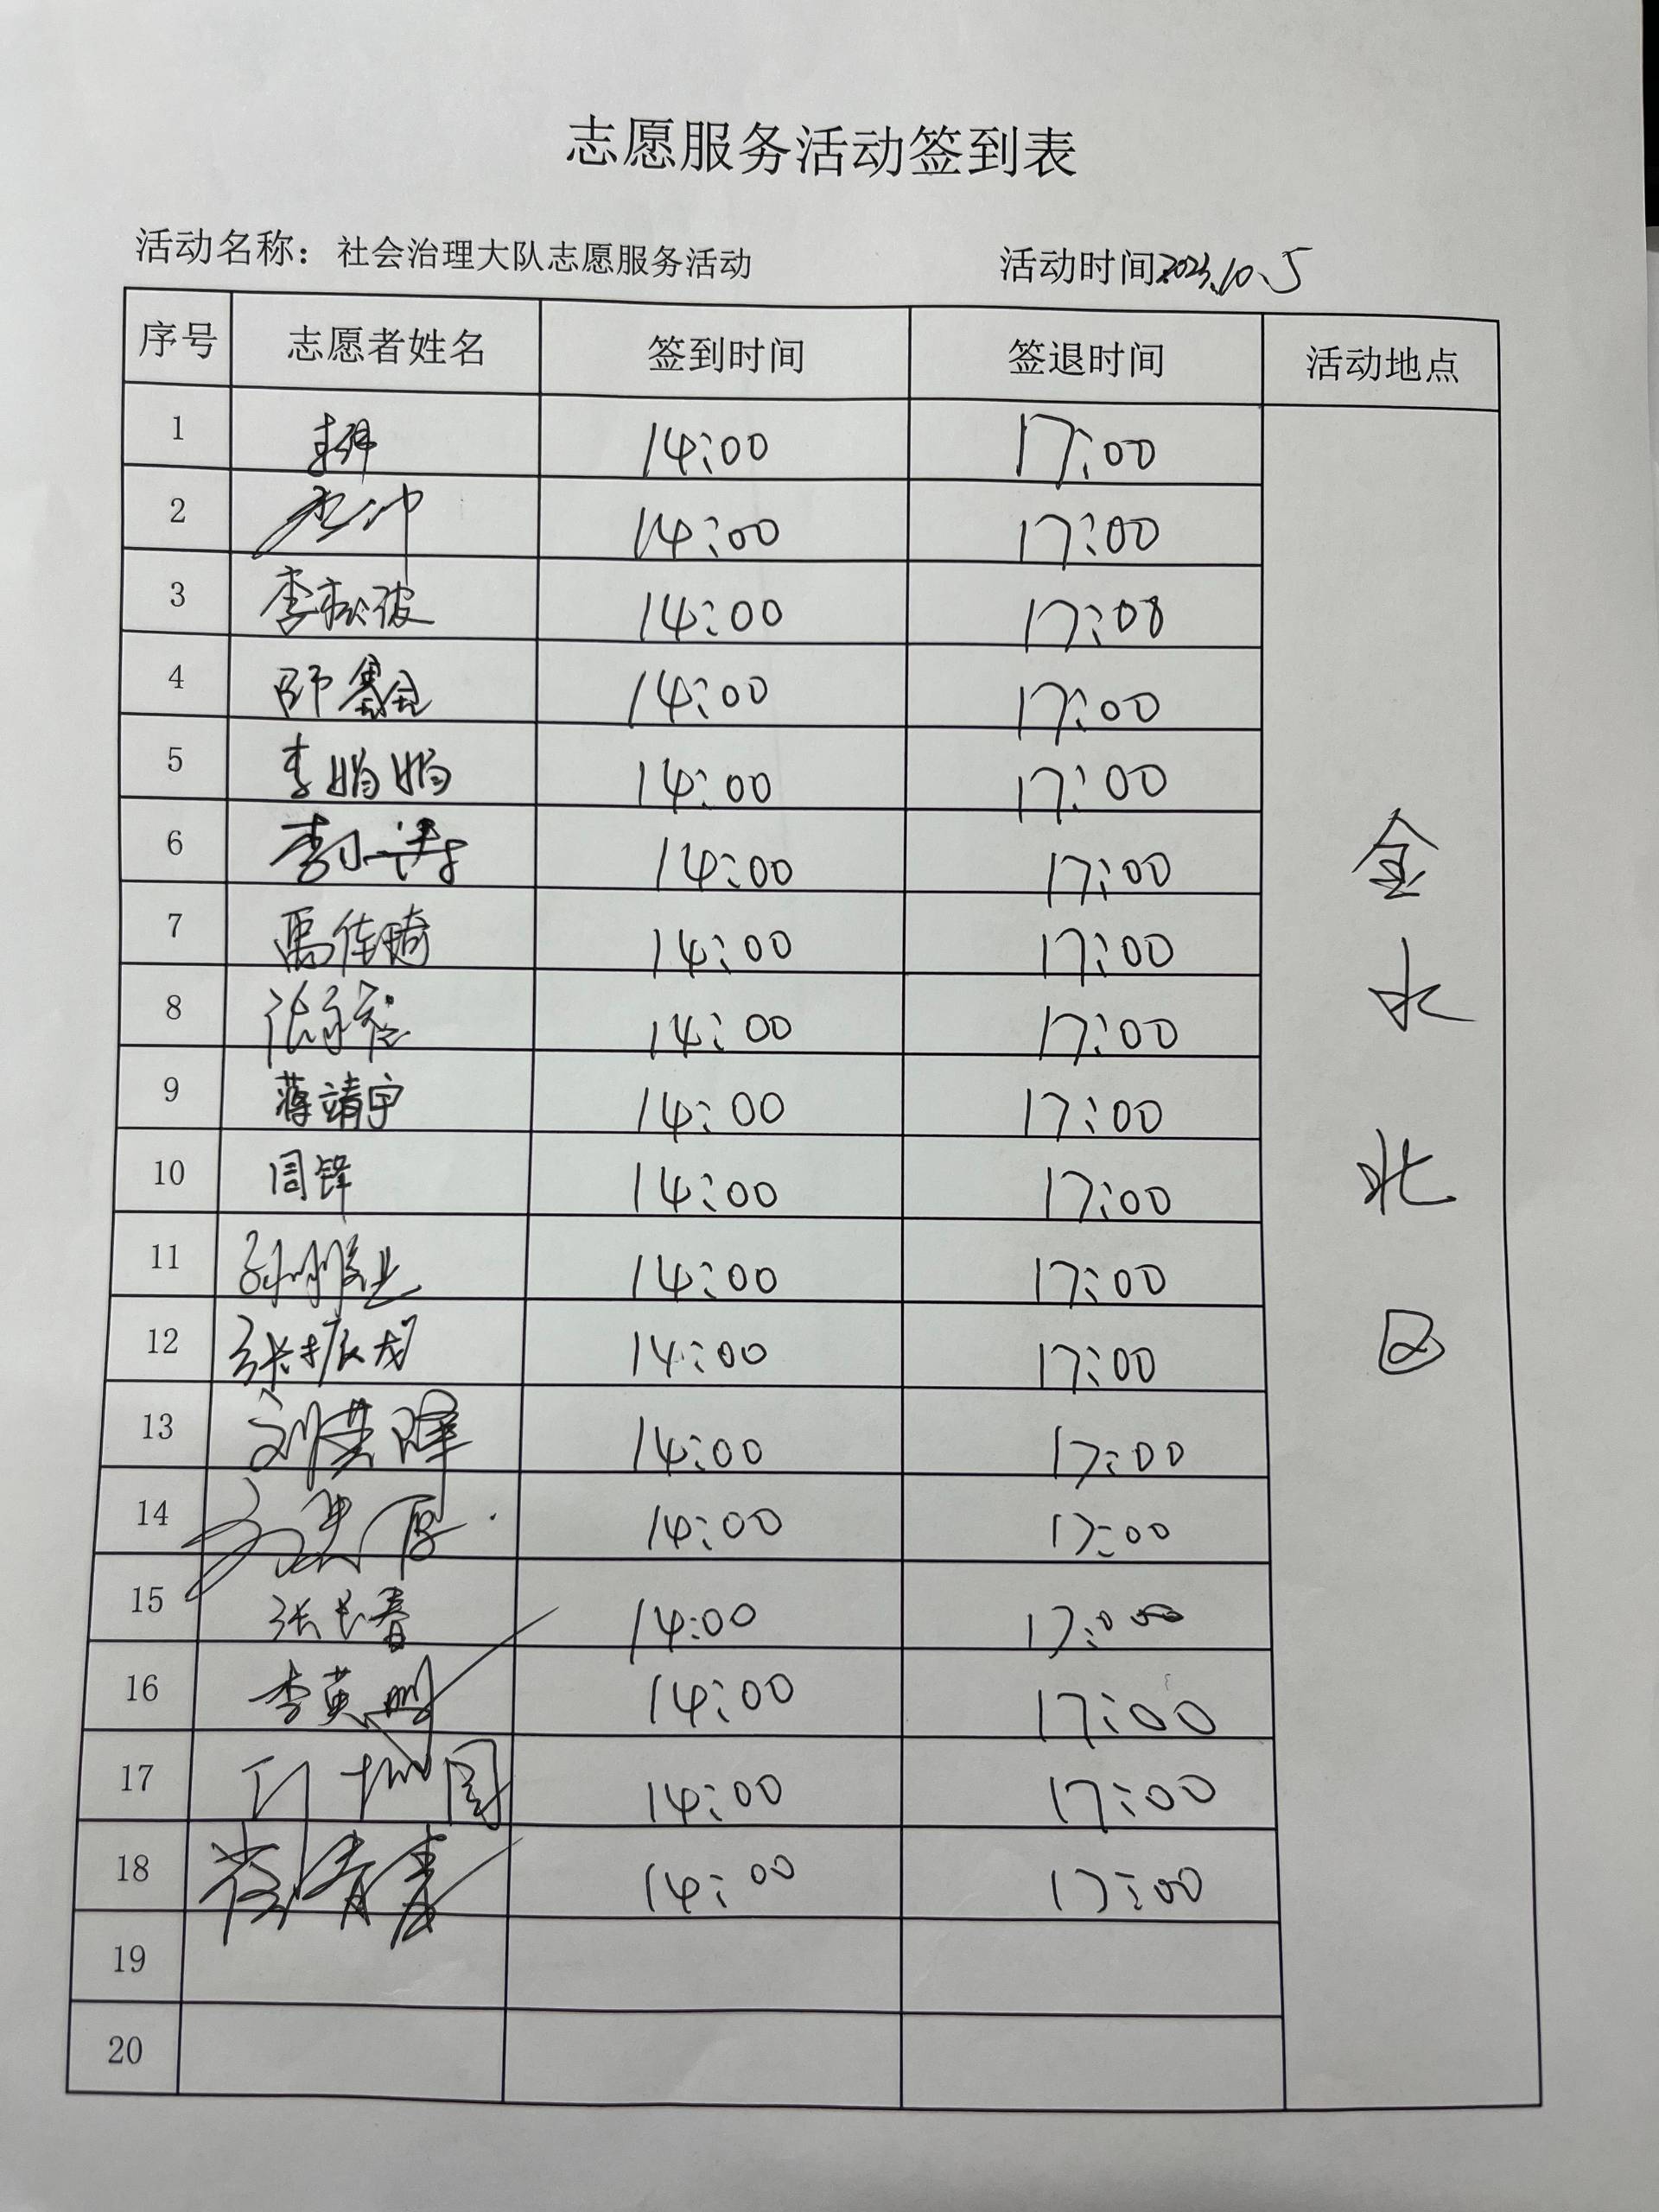 志愿服务活动签到表
活动名称：社会治理大队志愿服务活动 活动时间2023.10.5
序号 志愿者姓名 签到时间 签退时间 活动地点
1 14:00 17:00
2 14:00 17:00
3 李松波 14:00 17:00
4 师鑫 14:00 17:00
5 李娟娟 14:00 17:00
6 李小涛 14:00 17:00
7 禹佳琦 14:00 17:00
8 张 14:00 17:00
9 蒋靖宇 14:00 17:00
10 周锋 14:00 17:00
11 孙 业 14:00 17:00
12 张振戈 14:00 17:00
13 刘 14:00 17:00
14 14:00 17:00
15 张长春 14:00 17:00
16 李英 14:00 17:00
17 14:00 17:00
18 14:00 17:00
19
20
金
水
北
区